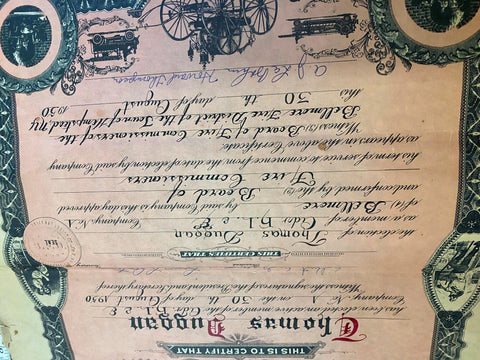 THIS IS TO CERTIFY THAT
Thomas Duggan
has been elected an active member of the Cidr H. L. & E.
Company, No. 1 on the 30 th day of August 1950
Witness the signatures of the President and Secretary thereof
THIS CERTIFIES THAT
Thomas Duggan
the election of
as a member of Cidr H L & E Company, No. 1
of (1) Bellmore by said Company, is this day approved
and confirmed by the (2) Board of
Fire Commissioners
his term of service to commence from the date of election by said Company
as appears in the above Certificate.
Witness (3) Board of Fire Commissioners of the
Bellmore Fire District of the Town of Hempstead, NY
this 30 th day of August 1950
Howard Thompson